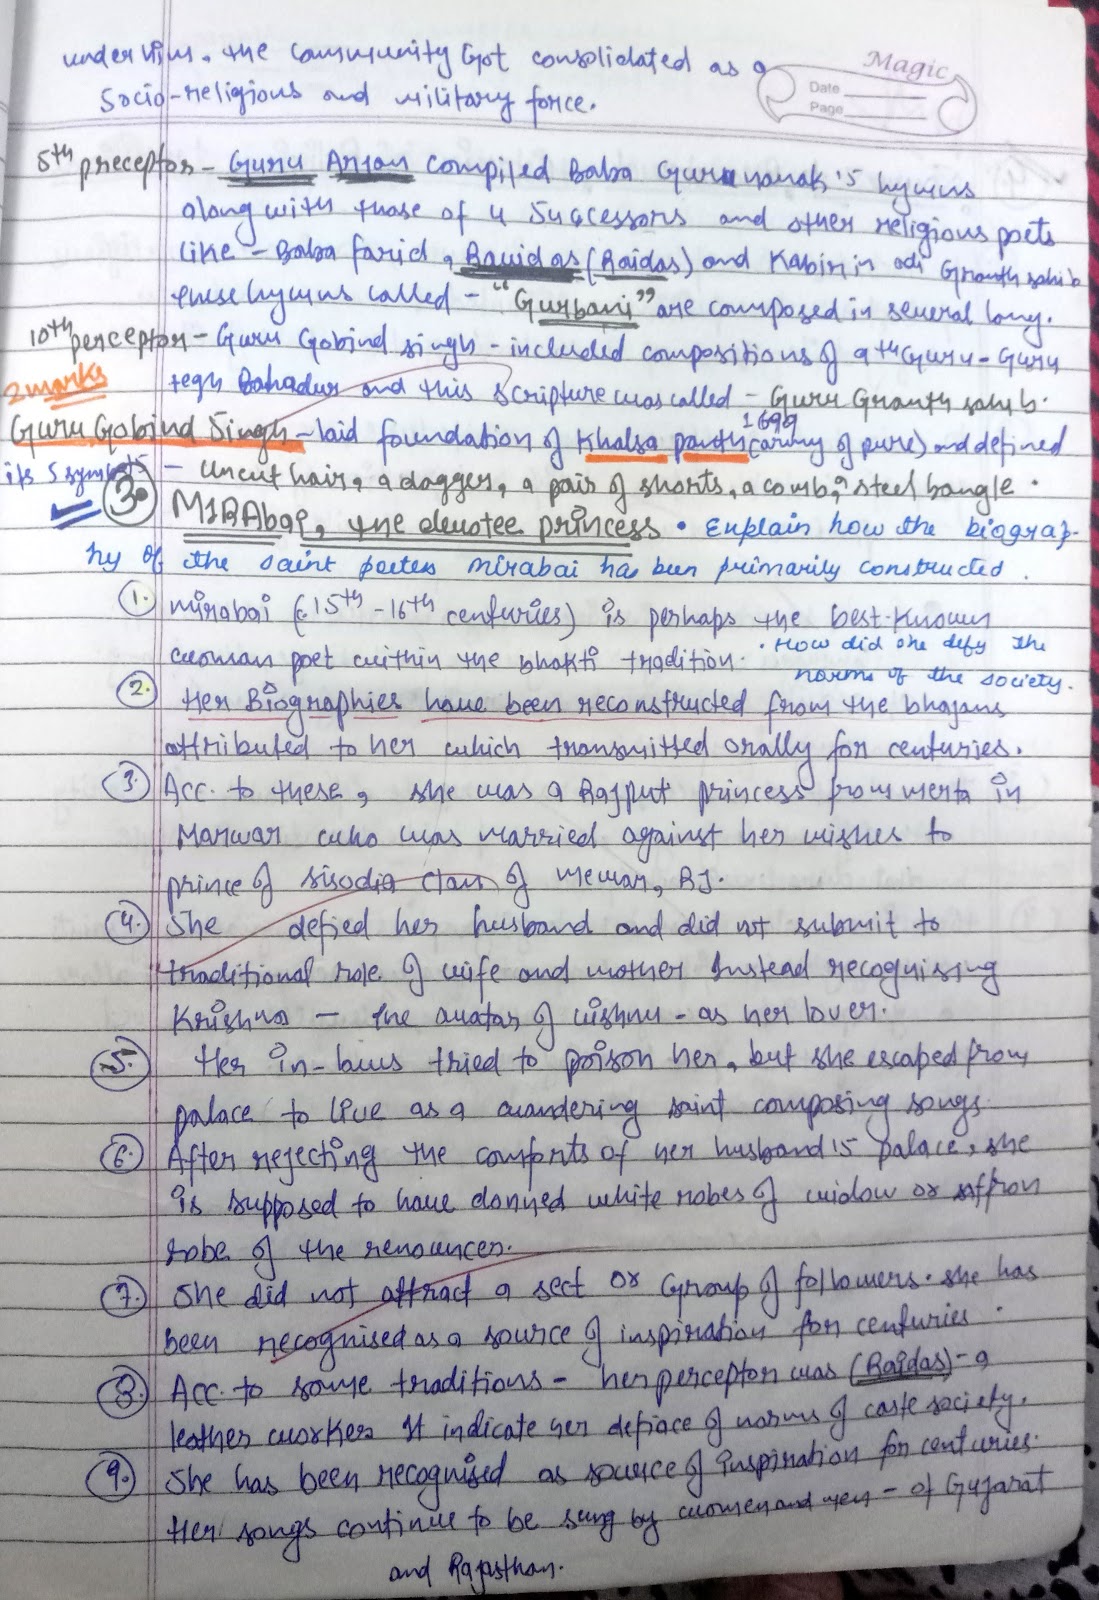 under him, the community Got consolidated as a
Socio-religious and military force.
Magic
Date
Page
5th preceptor - Guru Arjan compiled Baba Guru nanak's hymns
along with those of 4 Successors and other religious poets
like - Baba farid, Ravidas (Raidas) and Kabir in adi Granth sahib
these hymns called - "Gurbani" are composed in several lang.
10th perceptor - Guru Gobind singh - included compositions of 9th Guru - Guru
2 marks
tegh Bahadur and this scripture was called - Guru Granth sahib.
1699
Guru Gobind Singh - laid foundation of Khalsa panth (army of pure) and defined
its 5 symbols - uncut hair, a dagger, a pair of shorts, a comb, steel bangle.
3. MIRAbai, the devotee princess. Explain how the biograp-
hy of the saint poetess mirabai has been primarily constructed.
1. mirabai (c. 15th - 16th centuries) is perhaps the best-known
woman poet within the bhakti tradition. . How did she defy the
norms of the society.
2. Her Biographies have been reconstructed from the bhajans
attributed to her which transmitted orally for centuries.
3. Acc. to these, she was a Rajput princess from merta in
Marwar who was married against her wishes to
prince of sisodia clan of mewar, RJ.
4. She defied her husband and did not submit to
traditional role of wife and mother Instead recognising
Krishna - the avatar of vishnu - as her lover.
5. Her in-laws tried to poison her, but she escaped from
palace to live as a wandering saint composing songs
6. After rejecting the comforts of her husband's palace, she
is supposed to have donned white robes of widow or saffron
robe of the renouncer.
7. She did not attract a sect or Group of followers. she has
been recognised as a source of inspiration for centuries.
8. Acc. to some traditions - her perceptor was (Raidas) - a
leather worker. It indicate her defiace of norms of caste society.
9. She has been recognised as source of inspiration for centuries.
Her songs continue to be sung by women and men - of Gujarat
and Rajasthan.